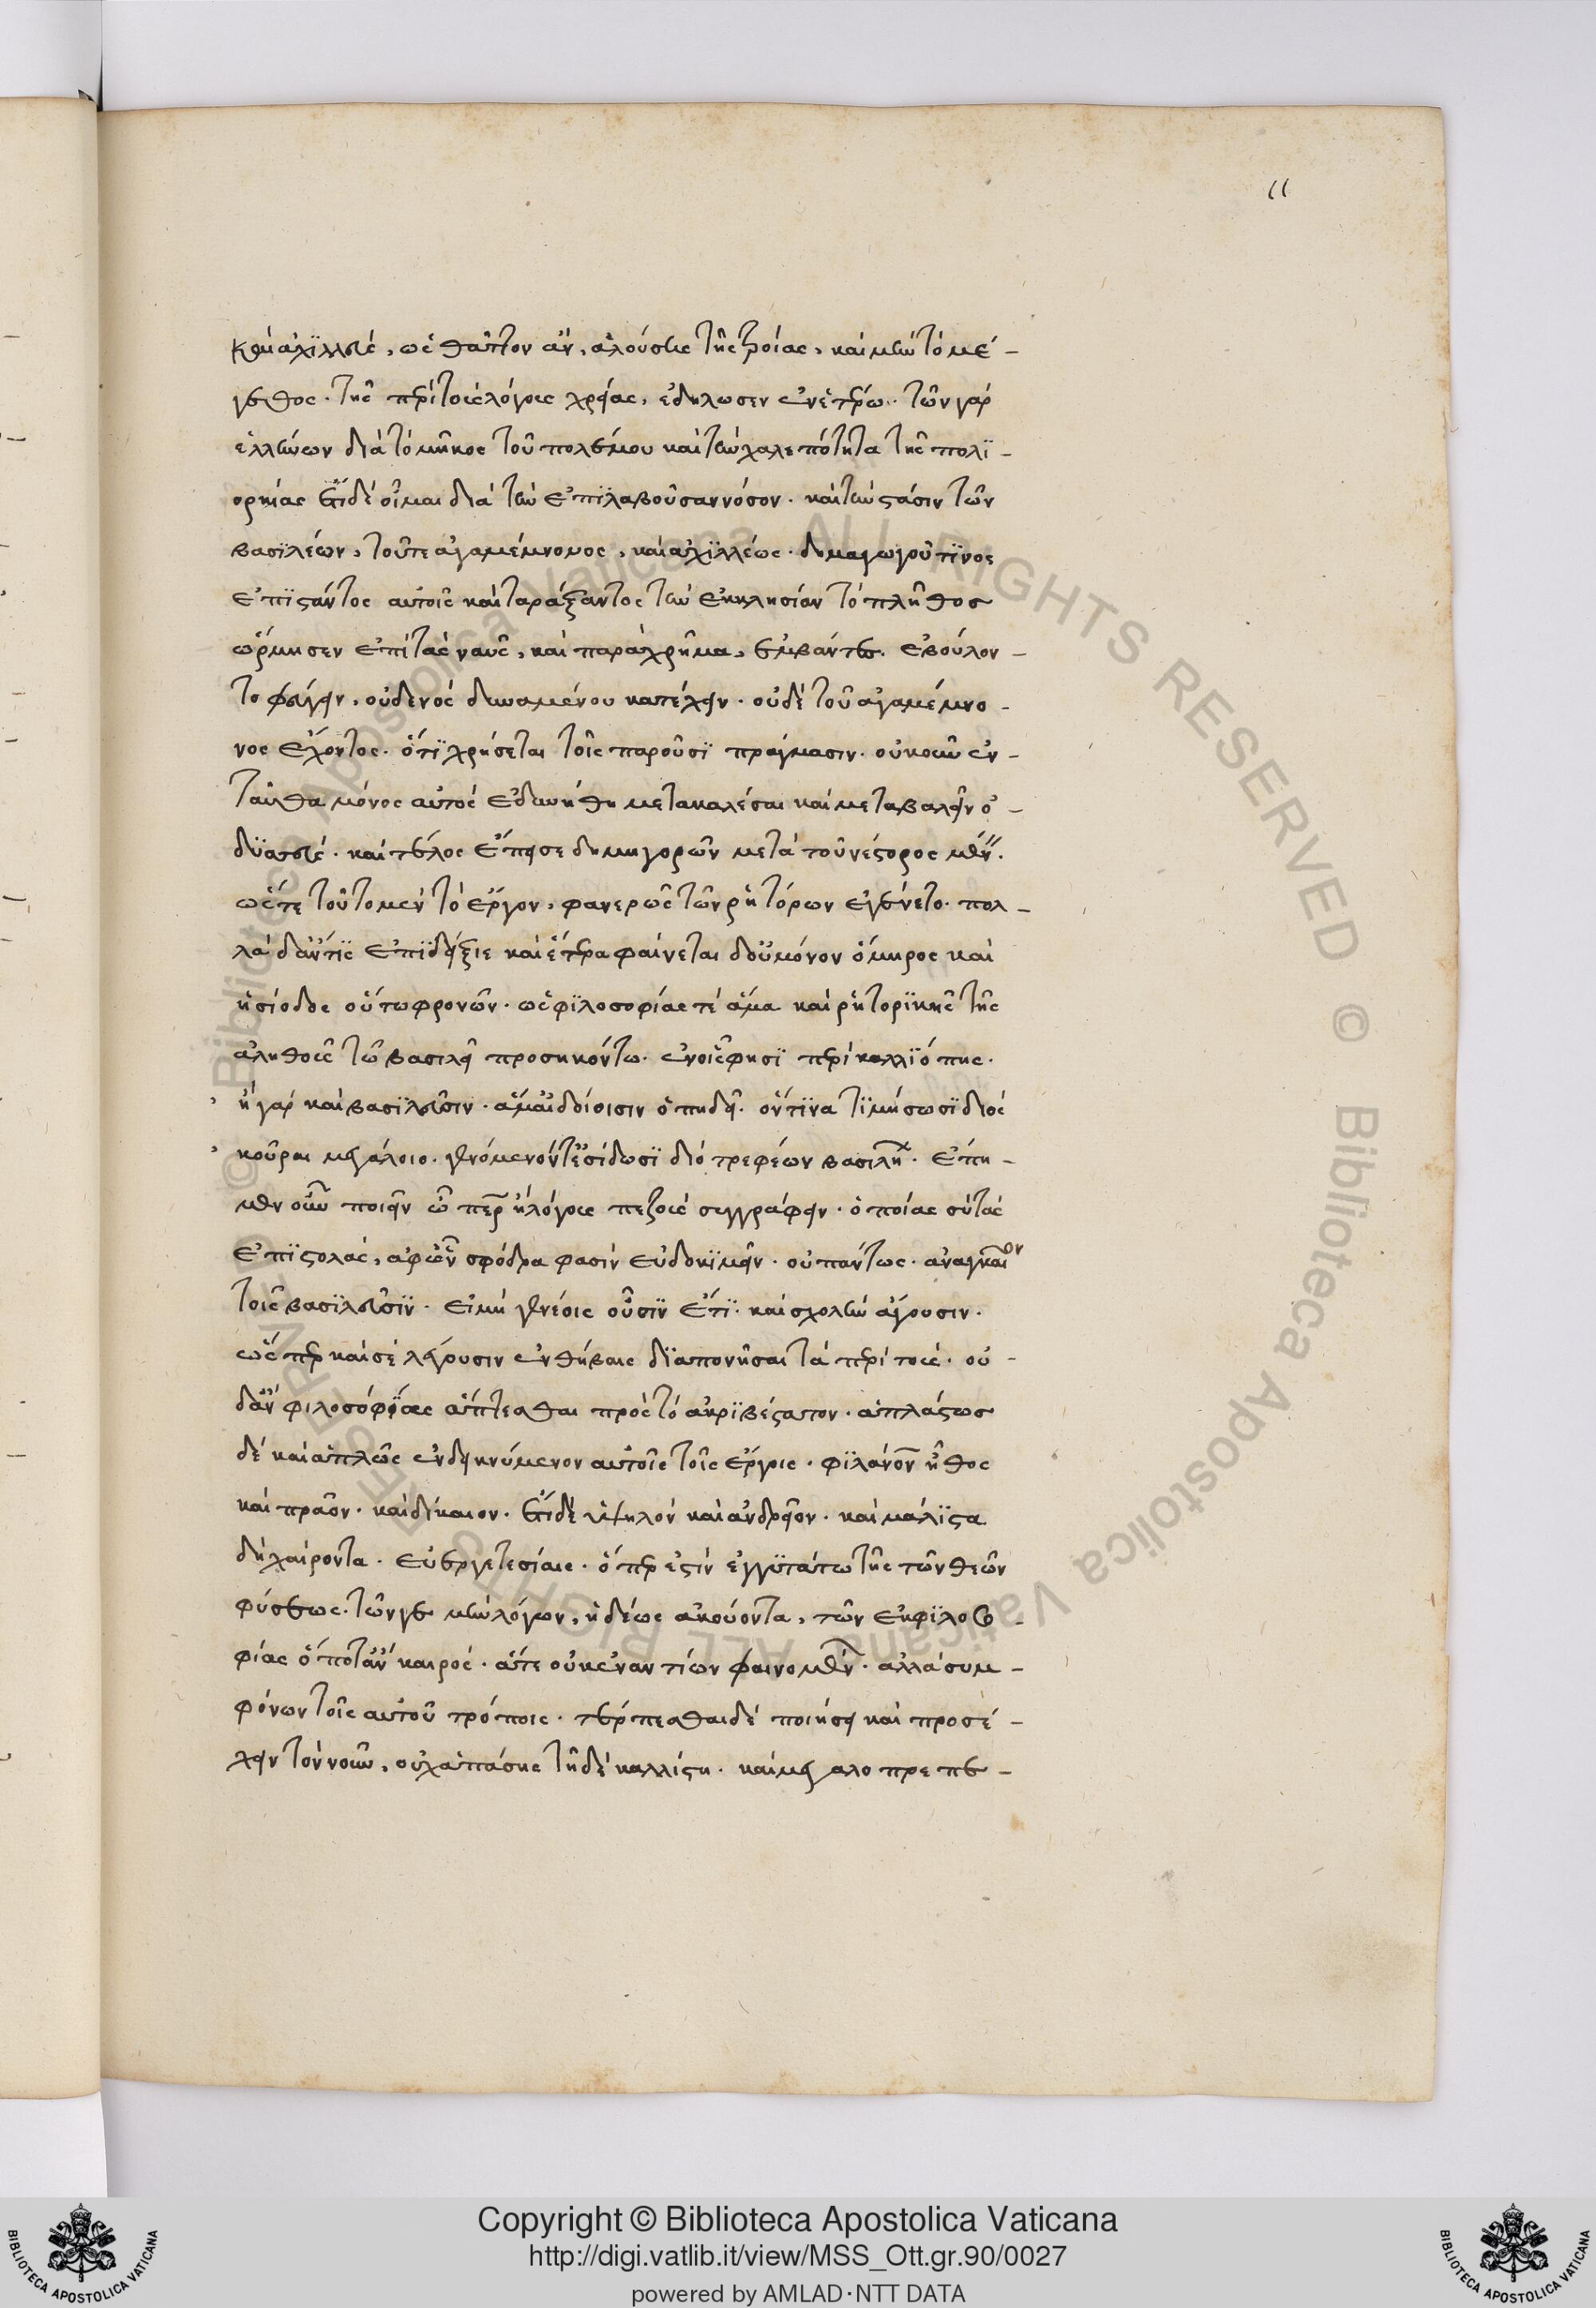 11
καὶ ἀχϊλλεὺς, ὡς θᾶττον ἂν, ἁλούσης τῆς τροίας, καὶ μὴν τὸ μέ-
γεθος. τῆς περὶ τοὺς λόγους χρείας, ἐδήλωσεν ἐν ἑτέρω. τῶν γὰρ
ἑλλήνων διὰ τὸ μῆκος τοῦ πολέμου καὶ τὴν χαλεπότητα τῆς πολϊ-
ορκίας ἔτι δὲ οἶμαι διὰ τὴν ἐπϊλαβοῦσαν νόσον. καὶ τὴν στάσιν τῶν
βασϊλέων, τοῦτε ἀγαμέμνονος, καὶ ἀχϊλλέως. δημαγωγοῦ τϊνος
ἐπϊστάντος αὐτοῖς καὶ ταράξαντος τὴν ἐκκλησίαν τὸ πλῆθος
ὥρμησεν ἐπὶ τὰς ναῦς, καὶ παραχρῆμα, ἐμβάντες ἐβούλον-
το φεύγειν, οὐδενὸς δυναμένου κατέχειν. οὐδὲ τοῦ ἀγαμέμνο-
νος ἔχοντος. ὅτϊ χρήσεται τοῖς παροῦσϊ πράγμασιν. οὐκοῦν ἐν-
ταῦθα μόνος αὐτοὺς ἐδυνήθη μετακαλέσαι καὶ μεταβαλεῖν ὀ-
δϋσσεύς. καὶ τέλος ἔπεισε δημηγορῶν μετὰ τοῦ νέστορος μένειν.
ὥστε τοῦτο μὲν τὸ ἔργον, φανερῶς τῶν ῥητόρων ἐγένετο. πολ-
λὰ δ' ἄν τϊς ἐπϊδείξιε καὶ ἕτερα φαίνεται δ' οὐ μόνον ὅμηρος καὶ
ἡσίοδος οὕτω φρονῶν. ὡς φϊλοσοφίας τὲ ἅμα καὶ ῥητορϊκῆς τῆς
ἀληθοῦς τῶ βασιλεῖ προσηκόντω. ἐν οἷς φησϊ περὶ καλλϊόπης.
ἡ γὰρ καὶ βασϊλεῦσιν. ἅμ' αἰδοίοισιν ὀπηδεῖ. ὅντϊνα τϊμήσωσϊ διὸς
κοῦραι μεγάλοιο. γεινόμενόν τ' ἐσίδωσϊ διοτρεφέων βασιλήων. ἔπη
μὲν οὖν ποιεῖν ὦ πέρ ἢ λόγους πεζοὺς συγγράφειν. ὁποίας σὺ τὰς
ἐπϊστολὰς, ἀφ' ὧν σφόδρα φασίν εὐδοκϊμεῖν. οὐ πάντως. ἀναγκαῖον
τοῖς βασϊλεῦσϊν. εἰ μὴ γε νέοις οὖσϊν ἔτϊ. καὶ σχολὴν ἄγουσιν.
ὥσπερ καὶ σὲ λέγουσιν ἐν θήβαις δϊαπονῆσαι τὰ περὶ τοὺς. οὐ-
δ' ἂν φιλοσοφϊας ἅπτεσθαι πρὸς τὸ ἀκρϊβέστατον. ἀπλάστως
δὲ καὶ ἁπλῶς ἐνδεικνύμενον αὐτοῖς τοῖς ἔργοις. φϊλάνον ἦθος
καὶ πρᾶον. καὶ δίκαιον. ἔτι δὲ ὑψηλὸν καὶ ἀνδρεῖον. καὶ μάλϊστα
δὴ χαίροντα. εὐεργετεσίαις. ὅπερ ἐστὶν ἐγγϋτάτω τῆς τῶν θεῶν
φύσεως. τῶν γε μὴν λόγων, ἡδέως ἀκούοντα, τῶν ἐκ φϊλοσο-
φίας ὁπότ' ἂν ἦ καιρός. ἅτε οὐκ ἐναντίων φαινομένων. ἀλλὰ συμ-
φόνων τοῖς αὐτοῦ τρόποις. τέρπεσθαι δὲ ποιήσει καὶ προσέ-
χειν τὸν νοῦν, οὐχ ἁπάσης τῆ δὲ καλλίστη. καὶ μεγαλοπρεπε-
Copyright © Biblioteca Apostolica Vaticana
http://digi.vatlib.it/view/MSS_Ott.gr.90/0027
powered by AMLAD·NTT DATA